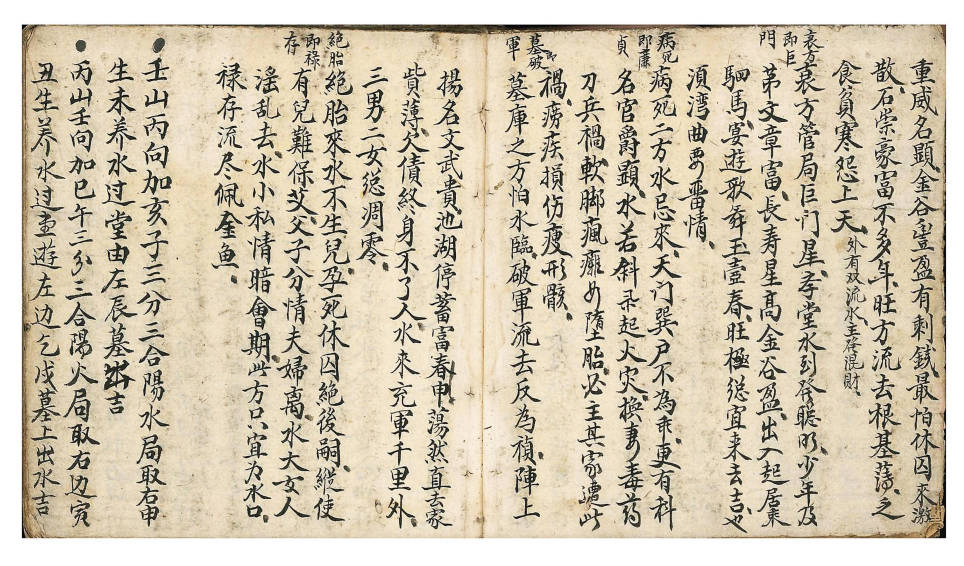 重威名顯金谷豊盈有剩錢最怕休囚來激
散石崇豪富不多年旺方流去根基薄之
食貧寒怨上天外有双流水主發混財
衰方即巨門
衰方管局巨门星李堂水到發聪明少年及
第文章富長寿星髙金谷盈出入起居乗
駟馬宴遊歌舜玉壹春旺極㧾宜来去吉也
湏湾曲要畨情
病死即亷貞
病死二方水忌來天门巽户不為乖更有科
名官爵顕水若斜飛起火灾換妻毒药
刀兵禍軟脚瘋癱女墮胎必主其家遭此
禍痨疾損伤瘦形骸
墓即破軍
墓庫之方怕水臨破軍流去反為禎陣上
揚名文武貴池湖停蓄富春申蕩然直去家
貲薄欠債終身不了人水來充軍千里外
三男二女㧾凋零
絕胎即禄存
絕胎來水不生兒孕死休囚絕後嗣縦使
有兒難保父父子分情夫婦离水大女人
淫乱去水小私情暗會期此方只宜为水口
禄存流尽佩金鱼
壬山丙向加亥子三分三合陽水局取右申
生未养水过堂由左辰墓出吉
丙山壬向加巳午三分三合陽火局取右边寅
丑生养水过堂遊左边乞戌墓上出水吉